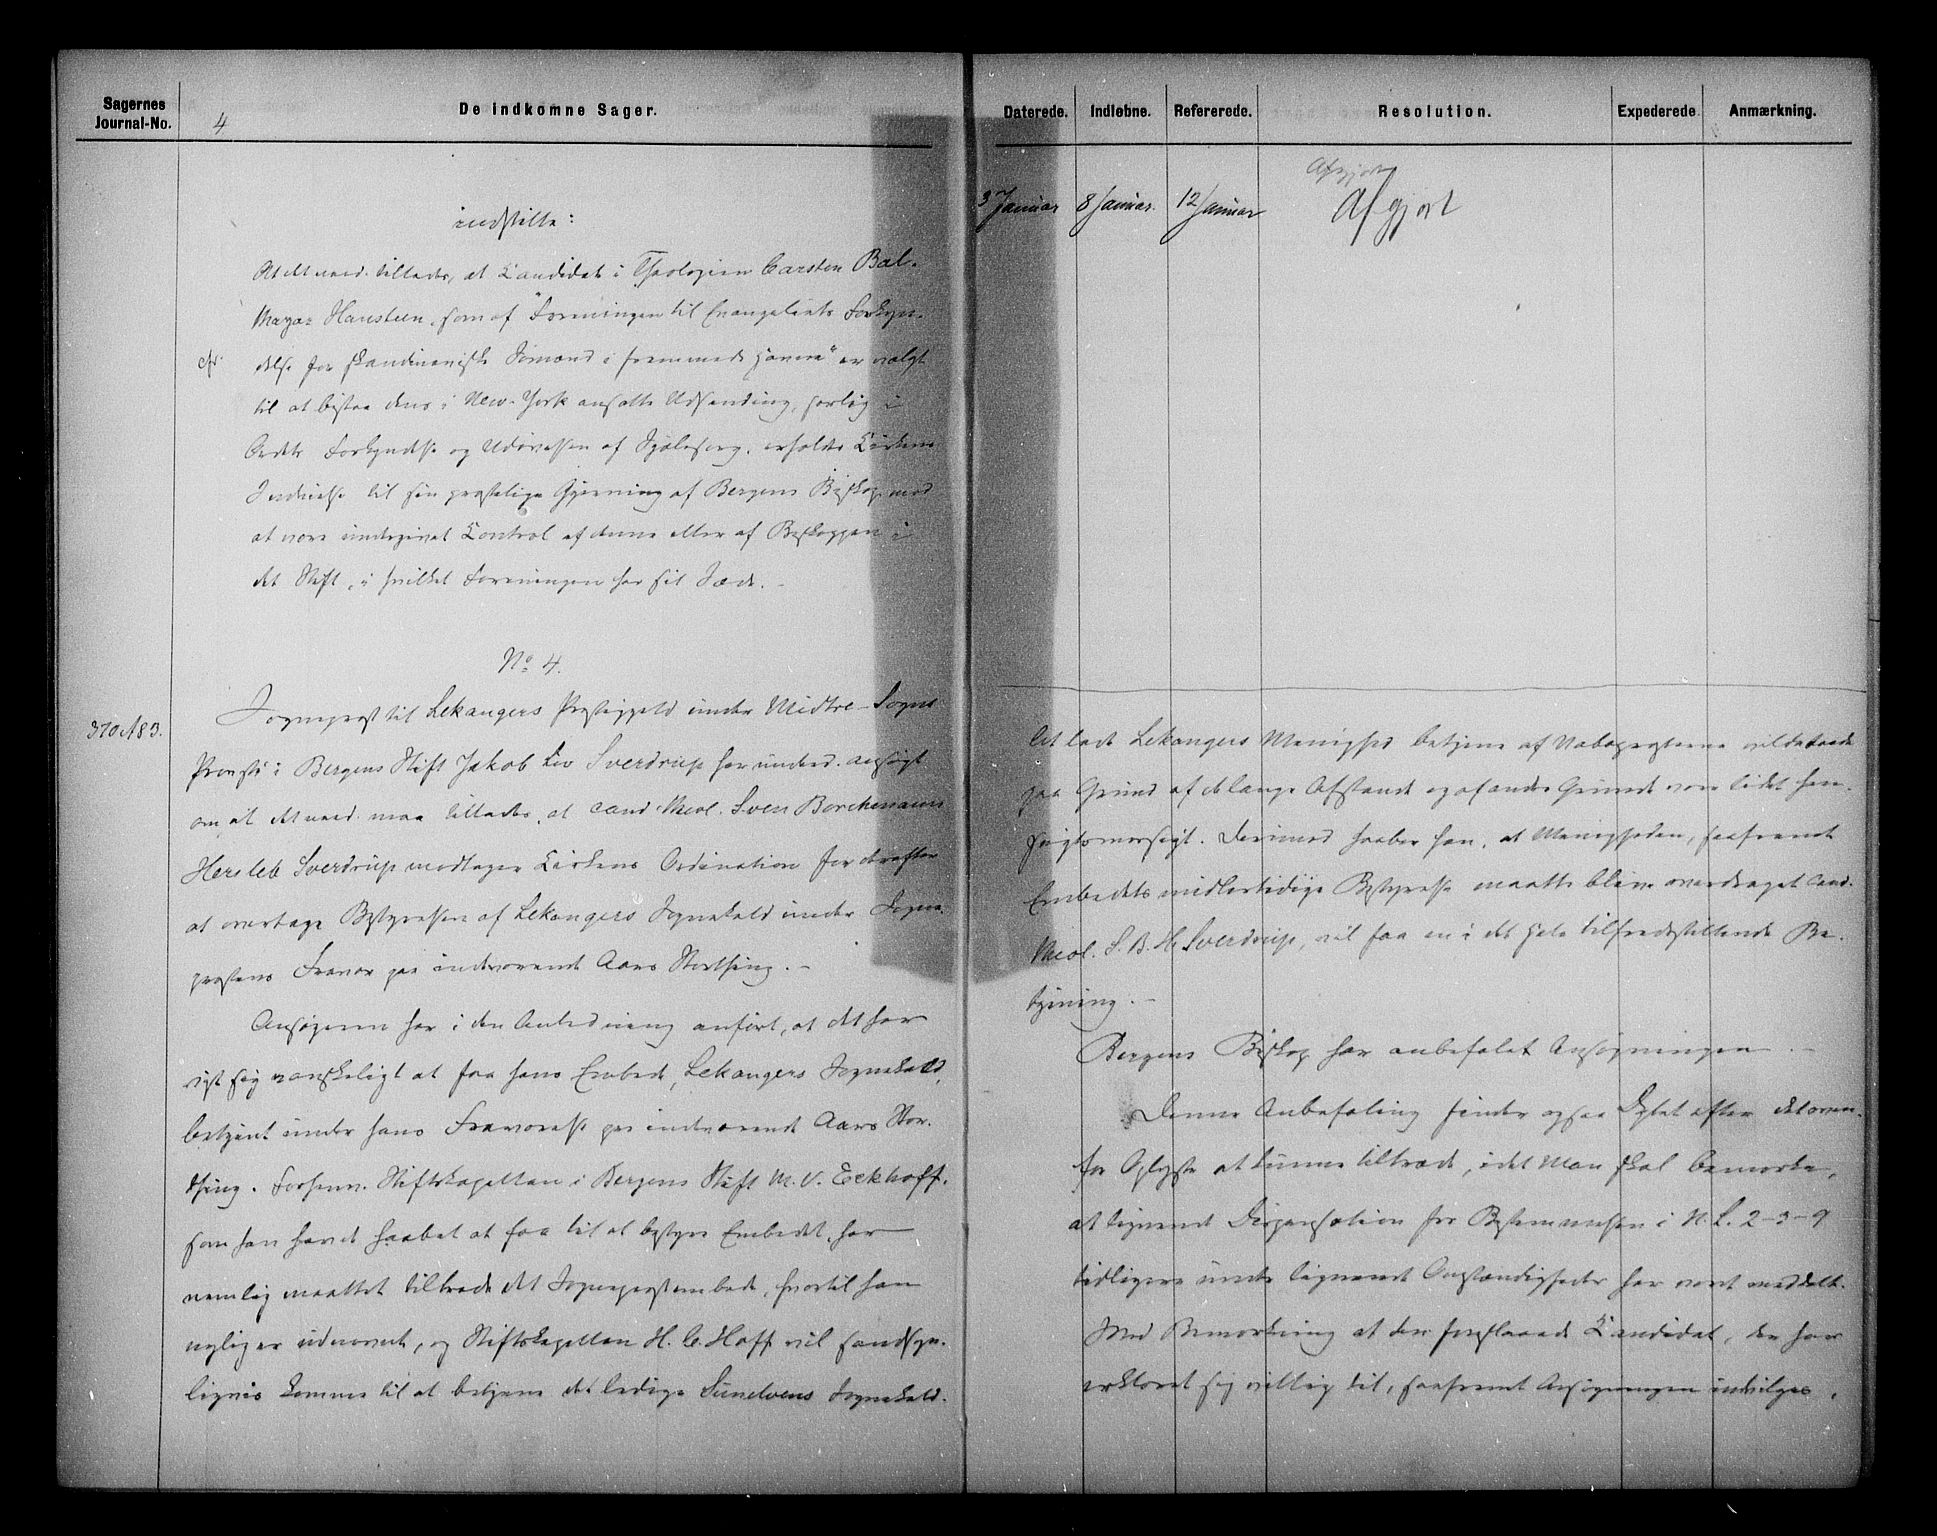 Sagernes
Journal-No.
4
De indkomne Sager.
indstille:
At det naad. tillades, at Candidat i Theologien Carsten Bal-
thazar Hansteen, som af "Foreningen til Evangeliets Forkyn-
delse for skandinaviske Sømænd i fremmede Havne" er valgt
til at bistaa dens i New-York ansatte Udsending, særlig i
Ordets Forkyndelse og Udøvelsen af Sjælesorg, erholder Kirkens
Indvielse til sin præstelige Gjerning af Bergens Biskop, mod
at være undergivet Control af denne eller af Biskoppen i
det Stift, i hvilket Foreningen har sit Sæde. -
No 4.
370 A 83.
Sognepræst til Lekangers Præstegjeld under Midtre-Sogns
Provsti i Bergens Stift Jakob Liv Sverdrup har underd. ansøgt
om at det naad. maa tillades, at cand. theol. Sven Borchmann
Hersleb Sverdrup modtager Kirkens Ordination for derefter
at overtage Bestyrelsen af Lekangers Sognekald under Sogne-
præstens Fravær paa indeværende Aars Storthing. -
Ansøgeren har i den Anledning anført, at det har
vist sig vanskeligt at faa hans Embede, Lekangers Sognekald,
betjent under hans Fraværelse paa indeværende Aars Stor-
thing. Forhenv. Stiftskapellan i Bergens Stift M. V. Eckhoff,
som han havde haabet at faa til at bestyre Embedet, har
nemlig maattet tiltræde det Sognepræstembede, hvortil han
nylig er udnævnt, og Stiftskapellan H. C. Hoff vil sandsyn-
ligvis komme til at betjene det ledige Sunelvens Sognekald.
Daterede.
Indløbne.
Refererede.
Resolution.
Expederede
Anmærkning.
3 Januar
8 Januar.
12 Januar
Afgjort
Afgjort
At lade Lekangers Menighed betjene af Nabopræsterne vilde baade
paa Grund af de lange Afstande og af andre Grunde være lidet hen-
sigtsmæssigt. Derimod haaber han, at Menigheden, saafremt
Embedets midlertidige Bestyrelse maatte blive overdraget Cand.
theol. S. B. H. Sverdrup, vil faa en i det Hele tilfredsstillende Be-
tjening. -
Bergens Biskop har anbefalet Ansøgningen -
Denne Anbefaling finder ogsaa Dptet efter det oven-
for Oplyste at kunne tiltræde, idet Man skal bemærke,
at lignende Dispensation fra Bestemmelsen i N. L. 2-3-9
tidligere under lignende Omstændigheder har været meddelt.
Med Bemærkning at den foreslaaede Candidat, der har
erklæret sig villig til, saafremt Ansøgningen indvilges,